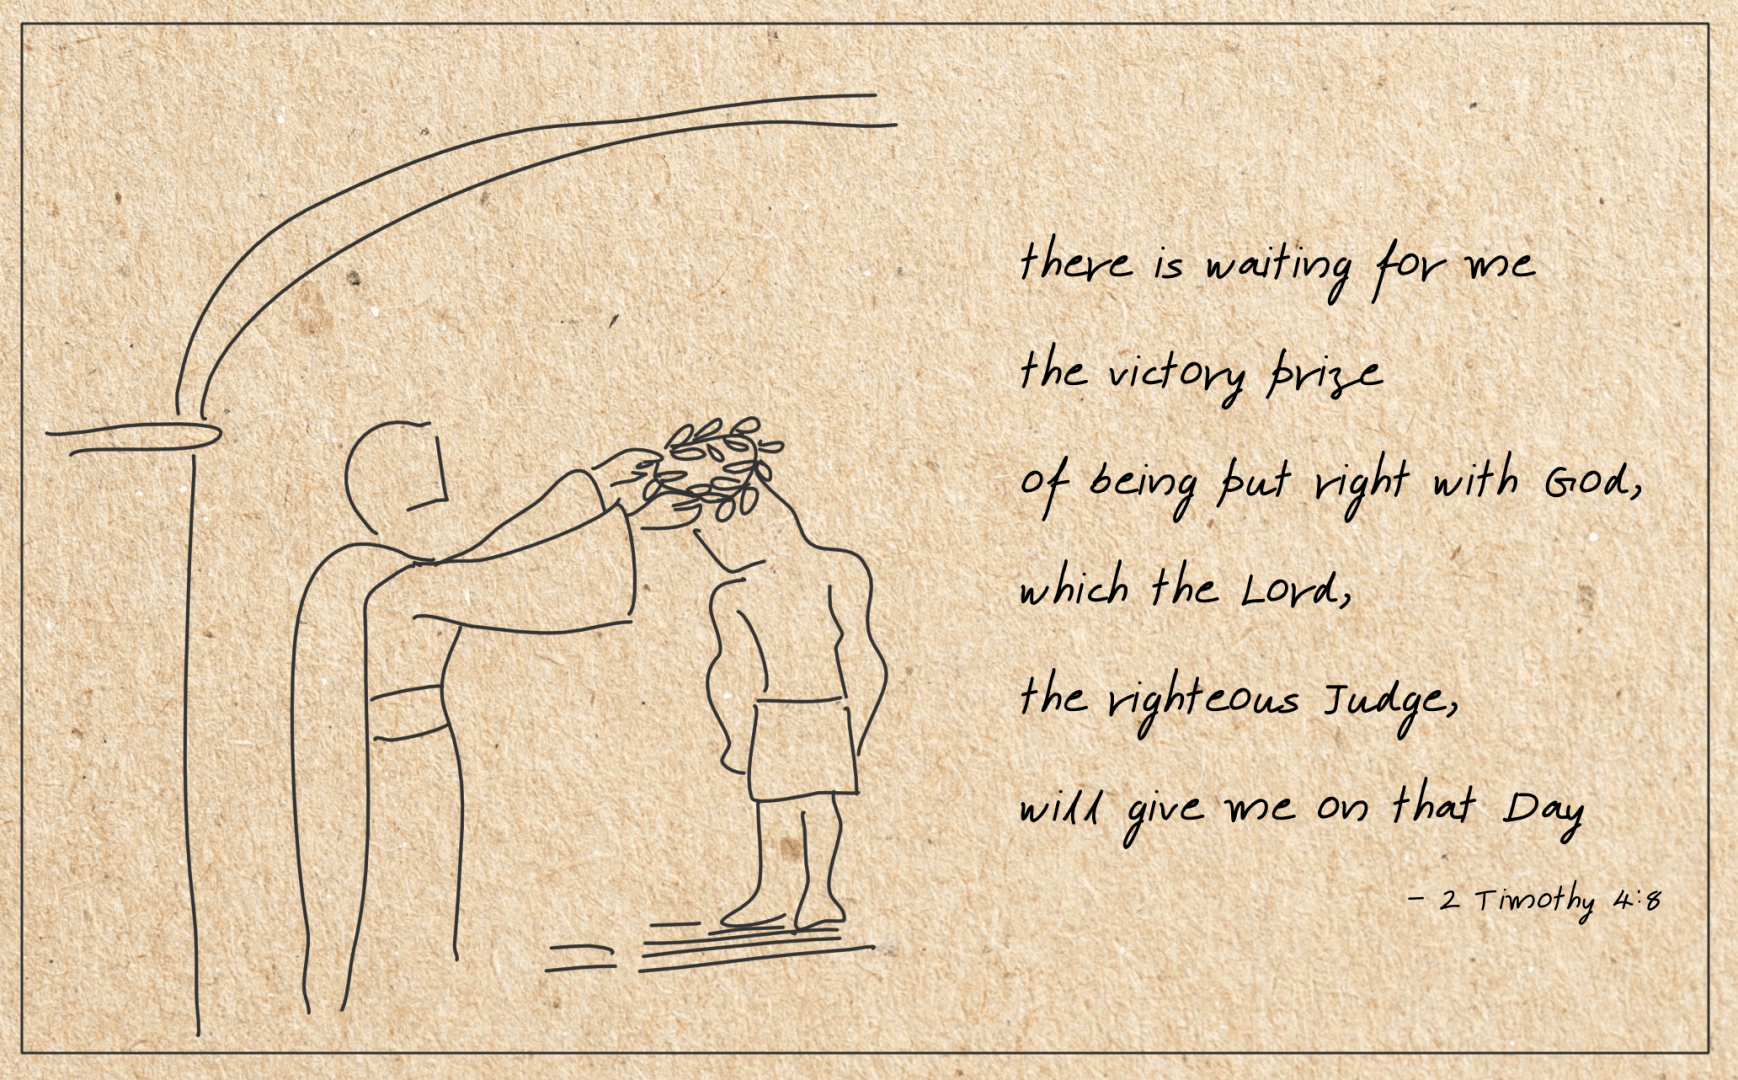 there is waiting for me
the victory prize
of being put right with God,
which the Lord,
the righteous Judge,
will give me on that Day
- 2 Timothy 4:8